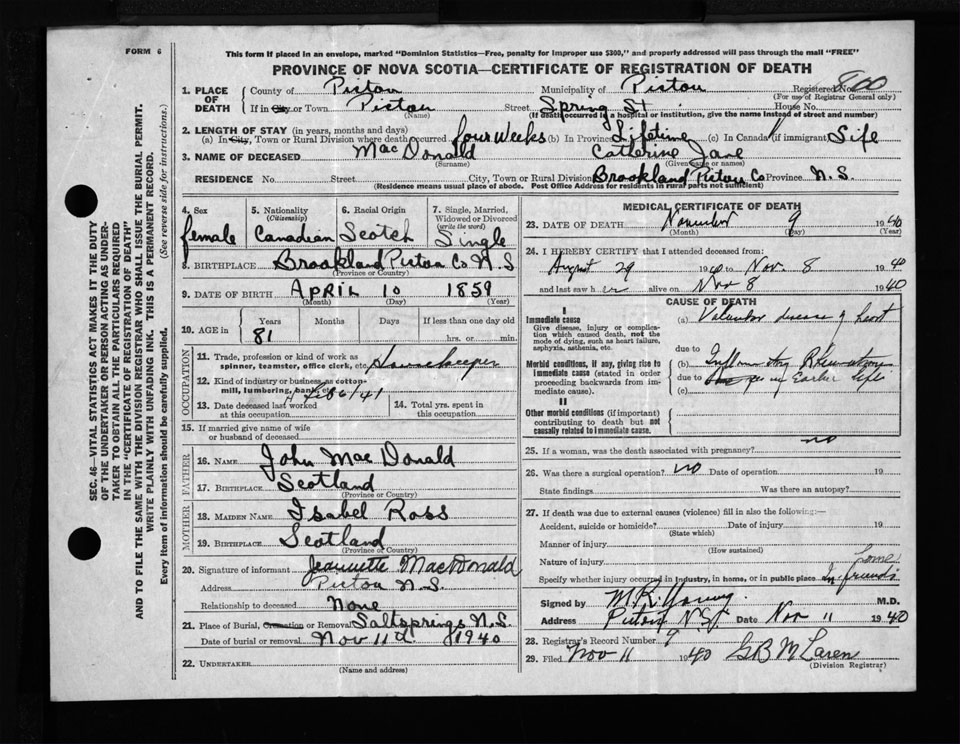 FORM 6
This form if placed in an envelope, marked "Dominion Statistics—Free, penalty for improper use $300," and properly addressed will pass through the mail "FREE"
PROVINCE OF NOVA SCOTIA—CERTIFICATE OF REGISTRATION OF DEATH
1. PLACE OF DEATH County of Pictou Municipality of Pictou Registered No. 800
(For use of Registrar General only)
If in City or Town Pictou Street Spring St House No.
(Name) (If death occurred in a hospital or institution, give the name instead of street and number)
2. LENGTH OF STAY (in years, months and days)
(a) In City, Town or Rural Division where death occurred four weeks (b) In Province Lifetime (c) In Canada if immigrant Life
3. NAME OF DECEASED MacDonald Catherine Jane
(Surname) (Given name or names)
RESIDENCE No. Street City, Town or Rural Division Brookland Pictou Co Province N.S.
(Residence means usual place of abode. Post Office Address for residents in rural parts not sufficient)
SEC. 46—VITAL STATISTICS ACT MAKES IT THE DUTY
OF THE UNDERTAKER OR PERSON ACTING AS UNDER-
TAKER TO OBTAIN ALL THE PARTICULARS REQUIRED
IN THE "CERTIFICATE OF REGISTRATION OF DEATH"
AND TO FILE THE SAME WITH THE DIVISION REGISTRAR WHO SHALL ISSUE THE BURIAL PERMIT.
WRITE PLAINLY WITH UNFADING INK. THIS IS A PERMANENT RECORD.
Every item of information should be carefully supplied. (See reverse side for instructions.)
4. Sex female
5. Nationality (Citizenship) Canadian
6. Racial Origin Scotch
7. Single, Married, Widowed or Divorced (write the word) Single
8. BIRTHPLACE Brookland Pictou Co N.S
(Province or Country)
9. DATE OF BIRTH APRIL 10 1859
(Month) (Day) (Year)
10. AGE in Years 81 Months Days If less than one day hrs. or min.
OCCUPATION
11. Trade, profession or kind of work as spinner, teamster, office clerk, etc. Housekeeper
12. Kind of industry or business, as cotton-mill, lumbering, bank, etc.
13. Date deceased last worked at this occupation
14. Total yrs. spent in this occupation
15. If married give name of wife or husband of deceased
FATHER
16. NAME John MacDonald
17. BIRTHPLACE Scotland
(Province or Country)
MOTHER
18. MAIDEN NAME Isabel Ross
19. BIRTHPLACE Scotland
(Province or Country)
20. Signature of informant Jeannette MacDonald
Address Pictou N.S.
Relationship to deceased None
21. Place of Burial, Cremation or Removal Saltsprings N.S.
Date of burial or removal Nov 11th 1940
22. UNDERTAKER
(Name) (Address)
MEDICAL CERTIFICATE OF DEATH
23. DATE OF DEATH November 9 1940
(Month) (Day) (Year)
24. I HEREBY CERTIFY that I attended deceased from:
August 29 1940 to Nov. 8 1940
and last saw her alive on Nov 8 1940
CAUSE OF DEATH
I
Immediate cause (a) Valvular disease of heart
Give disease, injury or complication which caused death, not the mode of dying, such as heart failure, asphyxia, asthenia, etc.
due to
Morbid conditions, if any, giving rise to immediate cause (stated in order proceeding backwards from immediate cause). (b) Inflammatory Rheumatism
due to in Earlier life
(c)
II
Other morbid conditions (if important) contributing to death but not causally related to immediate cause.
25. If a woman, was the death associated with pregnancy? no
26. Was there a surgical operation? no Date of operation 19
State findings Was there an autopsy?
27. If death was due to external causes (violence) fill in also the following:—
Accident, suicide or homicide? Date of injury 19
(State which)
Manner of injury
(How sustained)
Nature of injury
Specify whether injury occurred in industry, in home, or in public place
Signed by M.R. Young M.D.
Address Pictou N.S. Date Nov 11 1940
28. Registrar's Record Number 9
29. Filed Nov 11 1940 G B McLaren
(Division Registrar)